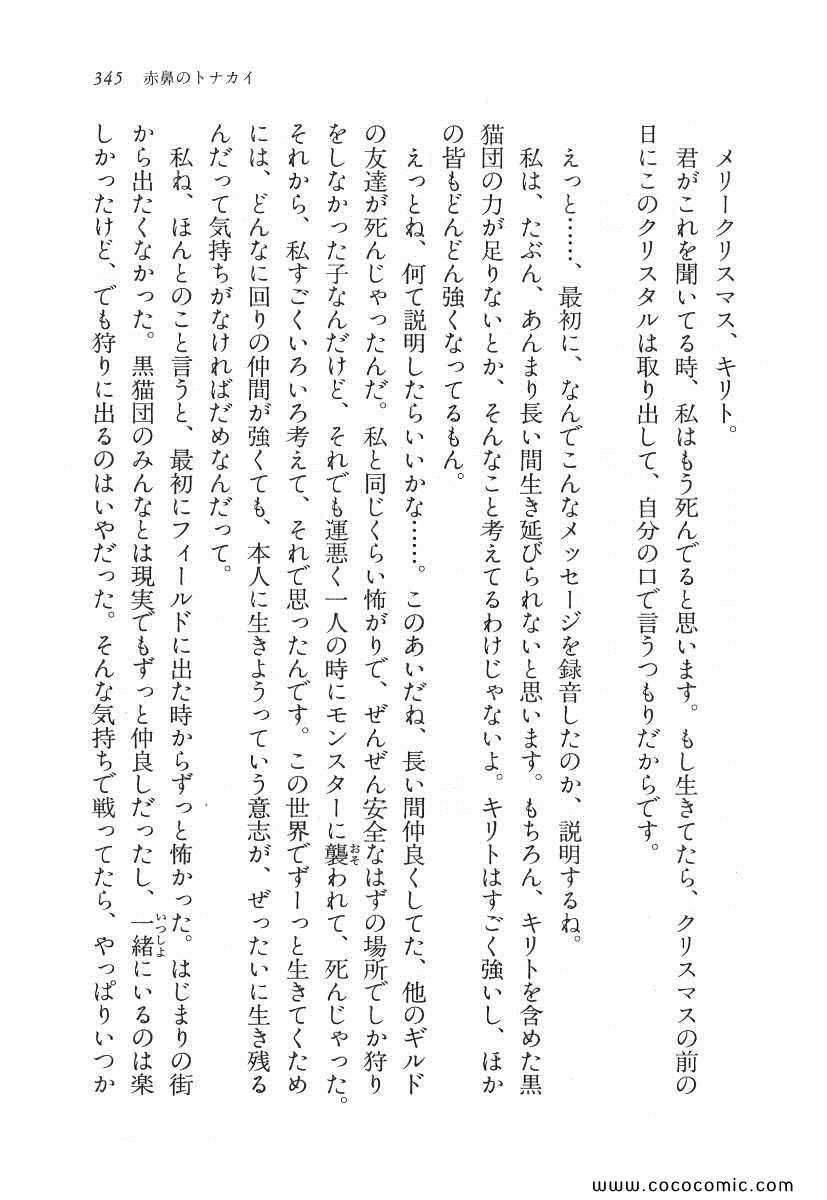 345 赤鼻のトナカイ
メリークリスマス、キリト。
君がこれを聞いてる時、私はもう死んでると思います。もし生きてたら、クリスマスの前の
日にこのクリスタルは取り出して、自分の口で言うつもりだからです。
えっと……、最初に、なんでこんなメッセージを録音したのか、説明するね。
私は、たぶん、あんまり長い間生き延びられないと思います。もちろん、キリトを含めた黒
猫団の力が足りないとか、そんなこと考えてるわけじゃないよ。キリトはすごく強いし、ほか
の皆もどんどん強くなってるもん。
えっとね、何て説明したらいいかな……。このあいだね、長い間仲良くしてた、他のギルド
の友達が死んじゃったんだ。私と同じくらい怖がりで、ぜんぜん安全なはずの場所でしか狩り
をしなかった子なんだけど、それでも運悪く一人の時にモンスターに襲われて、死んじゃった。
それから、私すごくいろいろ考えて、それで思ったんです。この世界でずーっと生きてくため
には、どんなに回りの仲間が強くても、本人に生きようっていう意志が、ぜったいに生き残る
んだって気持ちがなければだめなんだって。
私ね、ほんとのこと言うと、最初にフィールドに出た時からずっと怖かった。はじまりの街
から出たくなかった。黒猫団のみんなとは現実でもずっと仲良しだったし、一緒にいるのは楽
しかったけど、でも狩りに出るのはいやだった。そんな気持ちで戦ってたら、やっぱりいつか
www.cococomic.com